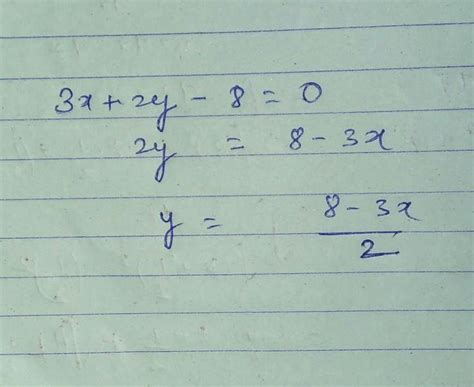 3x + 2y - 8 = 0
2y = 8 - 3x
y = (8 - 3x)/2